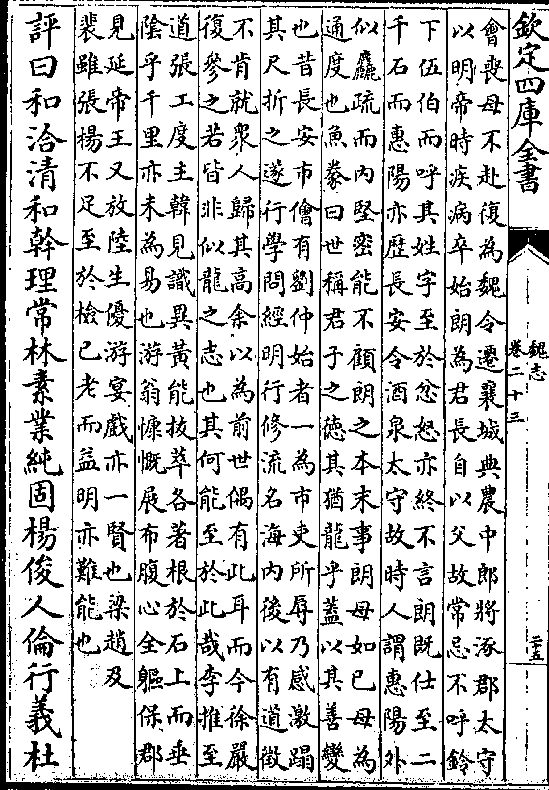 欽定四庫全書
魏志
卷二十三
二十五
會喪母不赴復為魏令遷襄城典農中郎將涿郡太守
以明帝時疾病卒始朗為君長自以父故常忌不呼鈴
下伍伯而呼其姓字至於忿怒亦終不言朗既仕至二
千石而惠陽亦歷長安令酒泉太守故時人謂惠陽外
似麤疏而內堅密能不顧朗之本末事朗母如已母為
通度也魚豢曰世稱君子之徳其猶龍乎蓋以其善變
也昔長安市儈有劉仲始者一為市吏所辱乃感激蹋
其尺折之遂行學問經明行修流名海內後以有道徵
不肯就衆人歸其高余以為前世偶有此耳而今徐嚴
復參之若皆非似龍之志也其何能至於此哉李推至
道張工度主韓見識異黃能拔萃各著根於石上而垂
陰乎千里亦未為易也游翁慷慨展布腹心全軀保郡
見延帝王又放陸生優游宴戲亦一賢也梁趙及
裴雖張楊不足至於檢已老而益明亦難能也
評曰和洽清和幹理常林素業純固楊俊人倫行義杜